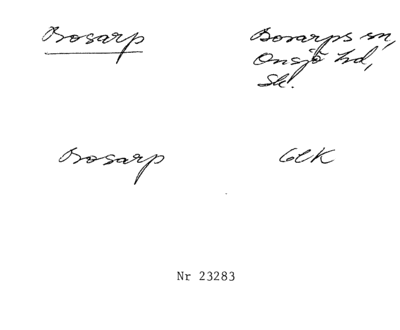 Bosarp
Bosarps sn,
Onsjö hd,
Sk.
Bosarp
GEK
Nr 23283